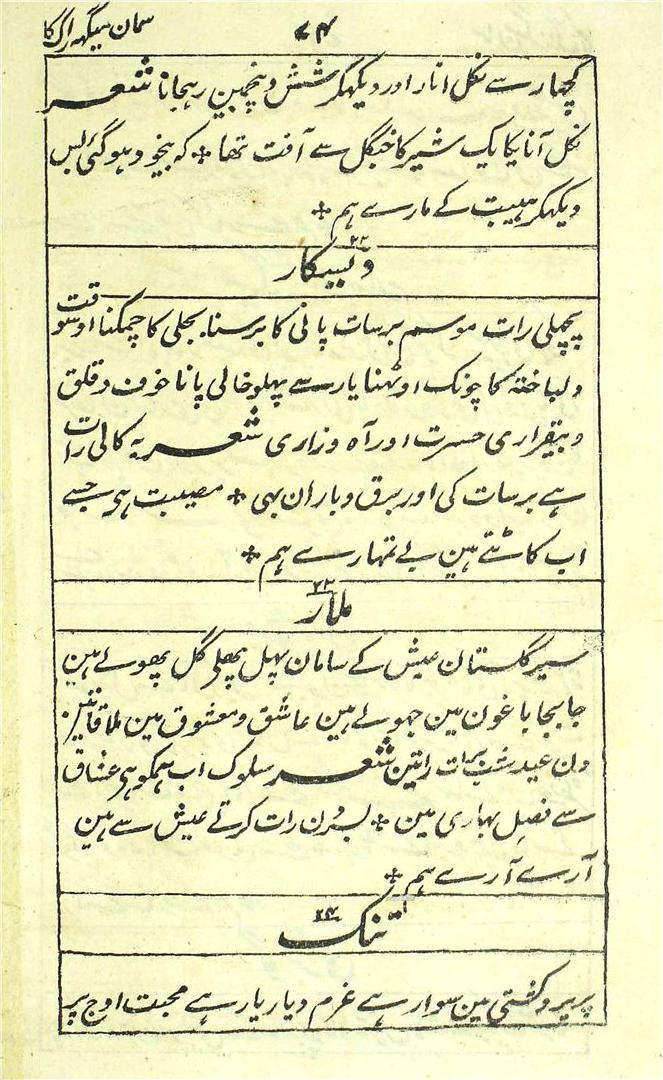 ۷۴
سمان میگهہ راگ کا
کچھار سے نکل انا اور دیکھکر شش و پنچ مین رہجانا شعر
نکل آنا یکایک شیر کا جنگل سے آفت تھا + کہ بیخود ہو گئی بس
دیکھکر ہیبت کے مارے ہم +
۲۲
دیسکار
پچھلی رات موسم برسات پانی کا برسنا بجلی کا چمکنا اوسوقت
دلباختہ کا چونک اوٹھنا یار سے پہلو خالی پانا خوف و قلق
و بیقراری حسرت اور آہ و زاری شعر یہ کالی رات
ہے برسات کی اور برق و باران بھی + مصیبت ہی جسے
اب کاٹتے ہین بے تمہارے ہم +
۲۳
ملار
سیر گلستان عیش کے سامان پھل پھلی گل پھولے ہین
جابجا باغون مین جھولے ہین عاشق و معشوق مین ملاقاتین
دن عید شب برات راتین شعر سلوک اب ہمکو ہی عشاق
سے فصل بہاری مین + بسر دن رات کرتے عیش سے ہین
آرے آرے ہم +
۲۴
تنک
پریرو کشتی مین سوار ہے عزم دیار یار ہے محبت اوج پر